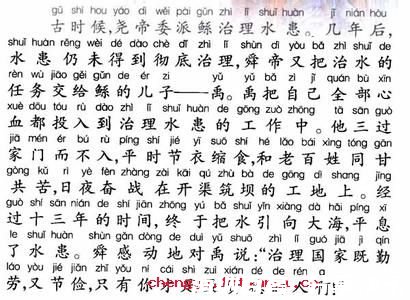 gǔ shí hou yáo dì wěi pài gǔn zhì lǐ shuǐ huàn jǐ nián hòu
古时候,尧帝委派鲧治理水患。几年后,
shuǐ huàn réng wèi dé dào chè dǐ zhì lǐ shùn dì yòu bǎ zhì shuǐ de
水患仍未得到彻底治理,舜帝又把治水的
rèn wù jiāo gěi gǔn de ér zi yǔ yǔ bǎ zì jǐ quán bù xīn
任务交给鲧的儿子——禹。禹把自己全部心
xuè dōu tóu rù dào zhì lǐ shuǐ huàn de gōng zuò zhōng tā sān guò
血都投入到治理水患的工作中。他三过
jiā mén ér bú rù píng shí jié yī suō shí hé lǎo bǎi xìng tóng gān
家门而不入,平时节衣缩食,和老百姓同甘
gòng kǔ rì yè fèn zhàng zài kāi qú zhù bà de gōng dì shang jīng
共苦,日夜奋战在开渠筑坝的工地上。经
guò shí sān nián de shí jiān zhōng yú bǎ shuǐ yǐn xiàng dà hǎi píng xī
过十三年的时间,终于把水引向大海,平息
le shuǐ huàn shùn gǎn dòng de duì yǔ shuō zhì lǐ guó jiā jì qín
了水患。舜感动地对禹说:“治理国家既勤
láo yòu jié jiǎn zhǐ yǒu nǐ cái shì zuì xián dé de rén a
劳,又节俭,只有你